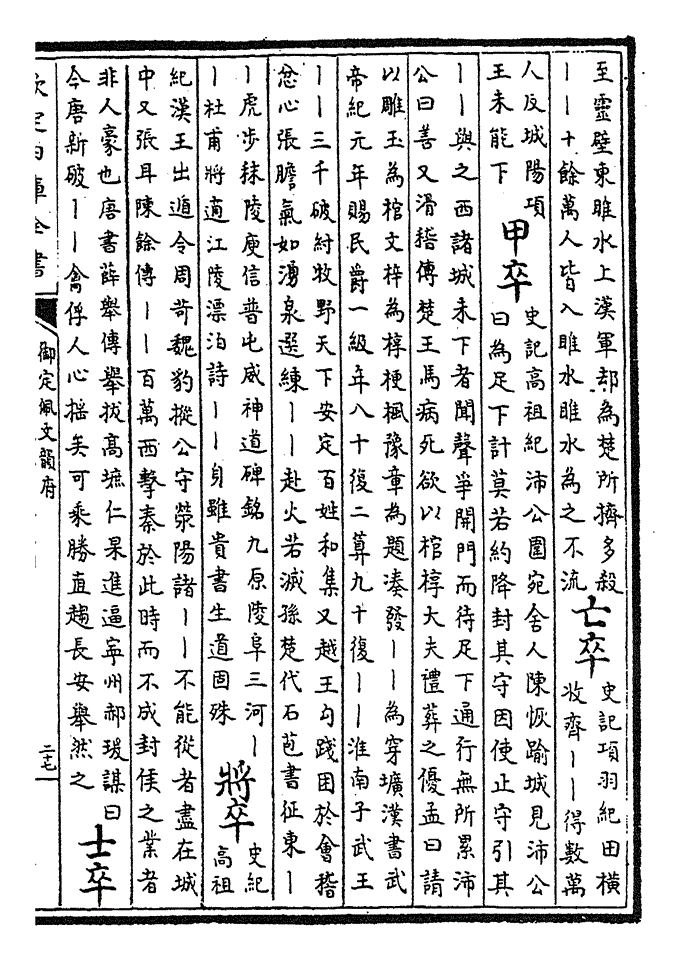 至靈壁東睢水上漢軍却為楚所擠多殺
丨丨十餘萬人皆入睢水睢水為之不流
亡卒
史記項羽紀田橫
收齊丨丨得數萬
人反城陽項
王未能下
甲卒
史記高祖紀沛公圍宛舍人陳恢踰城見沛公
曰為足下計莫若約降封其守因使止守引其
丨丨與之西諸城未下者聞聲爭開門而待足下通行無所累沛
公曰善又滑稽傳楚王馬病死欲以棺椁大夫禮葬之優孟曰請
以雕玉為棺文梓為椁楩楓豫章為題凑發丨丨為穿壙漢書武
帝紀元年賜民爵一級年八十復二算九十復丨丨淮南子武王
丨丨三千破紂牧野天下安定百姓和集又越王勾踐困於會稽
忿心張膽氣如湧泉選練丨丨赴火若滅孫楚代石苞書征東丨
丨虎步秣陵庾信普屯威神道碑銘九原陵阜三河丨
丨杜甫將適江陵漂泊詩丨丨身雖貴書生道固殊
將卒
史紀
高祖
紀漢王出遁令周苛魏豹樅公守滎陽諸丨丨不能從者盡在城
中又張耳陳餘傳丨丨百萬西擊秦於此時而不成封侯之業者
非人豪也唐書薛舉傳舉拔高墌仁杲進逼寧州郝瑗謀曰
今唐新破丨丨禽俘人心搖矣可乘勝直趨長安舉然之
士卒
欽定四庫全書
御定佩文韻府
二十七